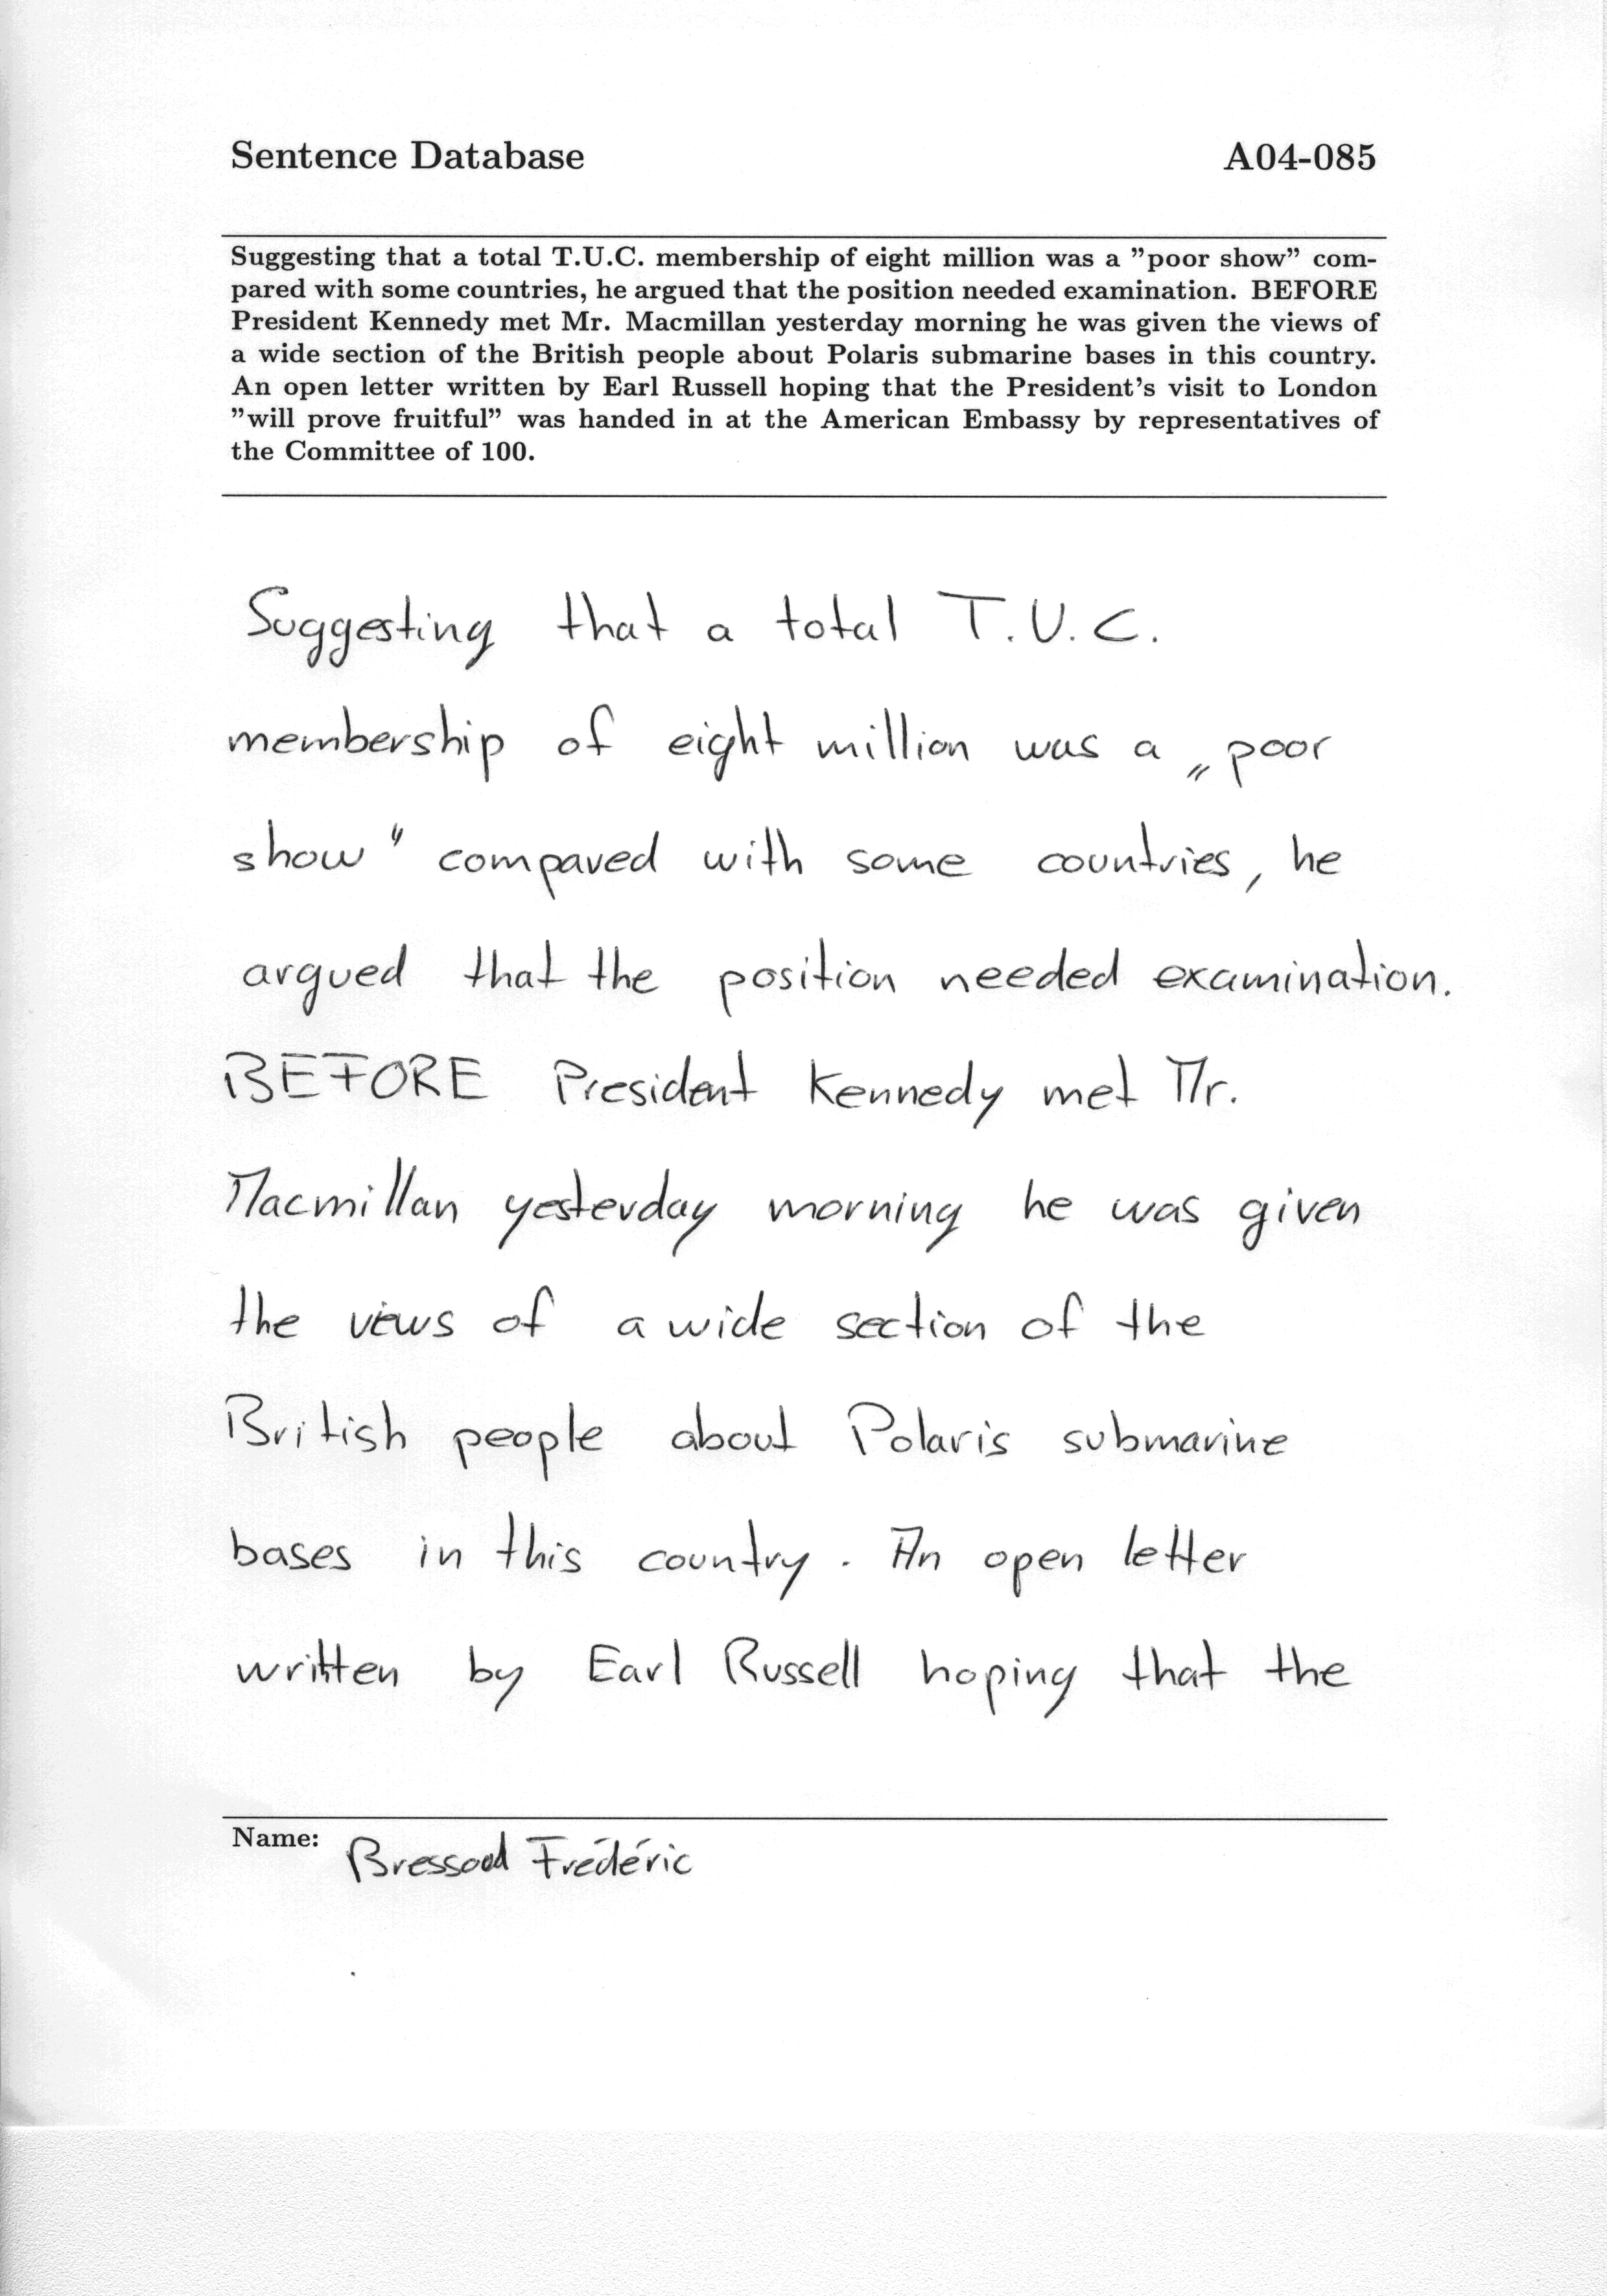 Sentence Database A04-085
Suggesting that a total T.U.C. membership of eight million was a ”poor show” com-
pared with some countries, he argued that the position needed examination. BEFORE
President Kennedy met Mr. Macmillan yesterday morning he was given the views of
a wide section of the British people about Polaris submarine bases in this country.
An open letter written by Earl Russell hoping that the President's visit to London
”will prove fruitful” was handed in at the American Embassy by representatives of
the Committee of 100.
Suggesting that a total T.U.C.
membership of eight million was a „poor
show" compared with some countries, he
argued that the position needed examination.
BEFORE President Kennedy met Mr.
Macmillan yesterday morning he was given
the views of a wide section of the
British people about Polaris submarine
bases in this country. An open letter
written by Earl Russell hoping that the
Name: Frédéric